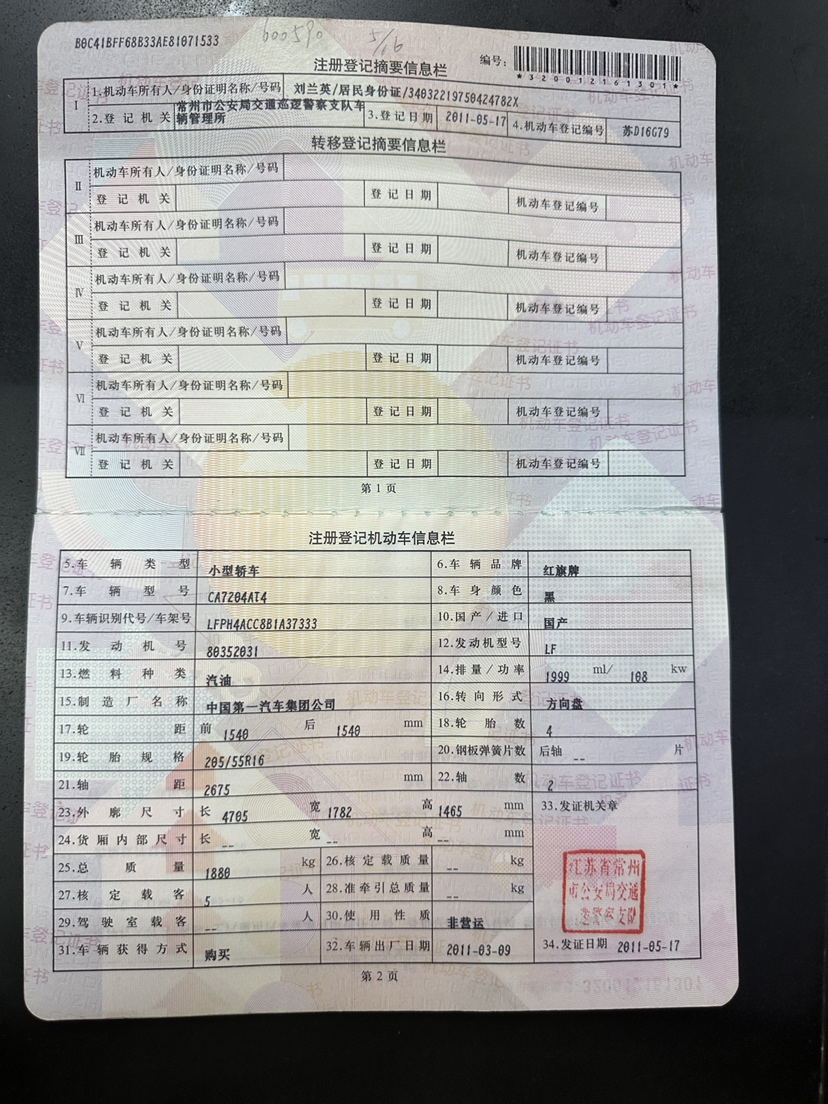 B0C41BFF68B33AE81071533
600590
5/16
编号:
*320012161301*
注册登记摘要信息栏
I 1.机动车所有人/身份证明名称/号码 刘兰英/居民身份证/34032219750424782X
2.登记机关 常州市公安局交通巡逻警察支队车辆管理所 3.登记日期 2011-05-17 4.机动车登记编号 苏D16G79
转移登记摘要信息栏
II 机动车所有人/身份证明名称/号码
登记机关 登记日期 机动车登记编号
III 机动车所有人/身份证明名称/号码
登记机关 登记日期 机动车登记编号
IV 机动车所有人/身份证明名称/号码
登记机关 登记日期 机动车登记编号
V 机动车所有人/身份证明名称/号码
登记机关 登记日期 机动车登记编号
VI 机动车所有人/身份证明名称/号码
登记机关 登记日期 机动车登记编号
VII 机动车所有人/身份证明名称/号码
登记机关 登记日期 机动车登记编号
第1页
注册登记机动车信息栏
5.车辆类型 小型轿车 6.车辆品牌 红旗牌
7.车辆型号 CA7204AT4 8.车身颜色 黑
9.车辆识别代号/车架号 LFPH4ACC8B1A37333 10.国产/进口 国产
11.发动机号 80352031 12.发动机型号 LF
13.燃料种类 汽油 14.排量/功率 1999 ml/ 108 kw
15.制造厂名称 中国第一汽车集团公司 16.转向形式 方向盘
17.轮距 前 1540 后 1540 mm 18.轮胎数 4
19.轮胎规格 205/55R16 20.钢板弹簧片数 后轴 -- 片
21.轴距 2675 mm 22.轴数 2
23.外廓尺寸 长 4705 宽 1782 高 1465 mm 33.发证机关章
24.货厢内部尺寸 长 -- 宽 -- 高 -- mm
25.总质量 1880 kg 26.核定载质量 -- kg
27.核定载客 5 人 28.准牵引总质量 -- kg
29.驾驶室载客 -- 人 30.使用性质 非营运
江苏省常州
市公安局交通
巡逻警察支队
31.车辆获得方式 购买 32.车辆出厂日期 2011-03-09 34.发证日期 2011-05-17
第2页